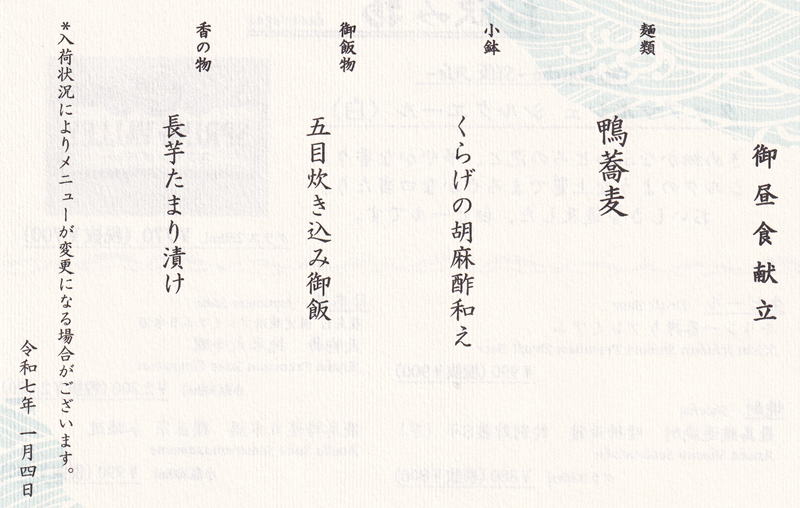 御昼食献立
麺類
鴨蕎麦
小鉢
くらげの胡麻酢和え
御飯物
五目炊き込み御飯
香の物
長芋たまり漬け
*入荷状況によりメニューが変更になる場合がございます。
令和七年 一月四日